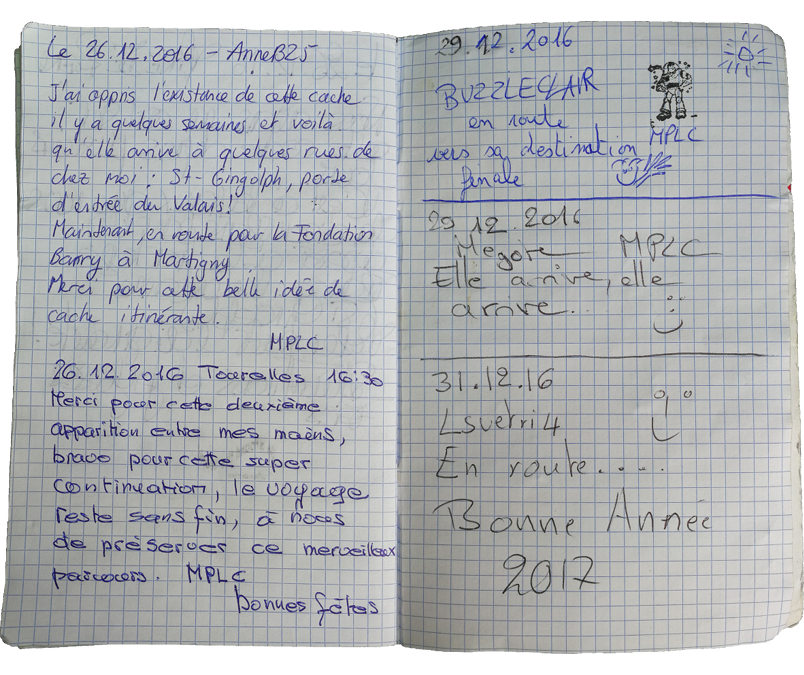 Le 26.12.2016 - AnneB25
J'ai appris l'existance de cette cache
il y a quelques semaines et voilà
qu'elle arrive à quelques rues de
chez moi : St-Gingolph, porte
d'entrée du Valais!
Maintenant, en route pour la Fondation
Barry à Martigny
Merci pour cette belle idée de
cache itinérante.
MPLC
26.12.2016 Tourelles 16:30
Merci pour cette deuxième
apparition entre mes mains,
bravo pour cette super
continuation, le voyage
reste sans fin, à nous
de préserver ce merveilleux
parcours. MPLC
bonnes fêtes
29.12.2016
BUZZLECLAIR
en route
vers sa destination MPLC
finale
29.12.2016
Megore MPLC
Elle arrive, elle
arrive.
31.12.16
Lsuetri4
En route....
Bonne Année
2017